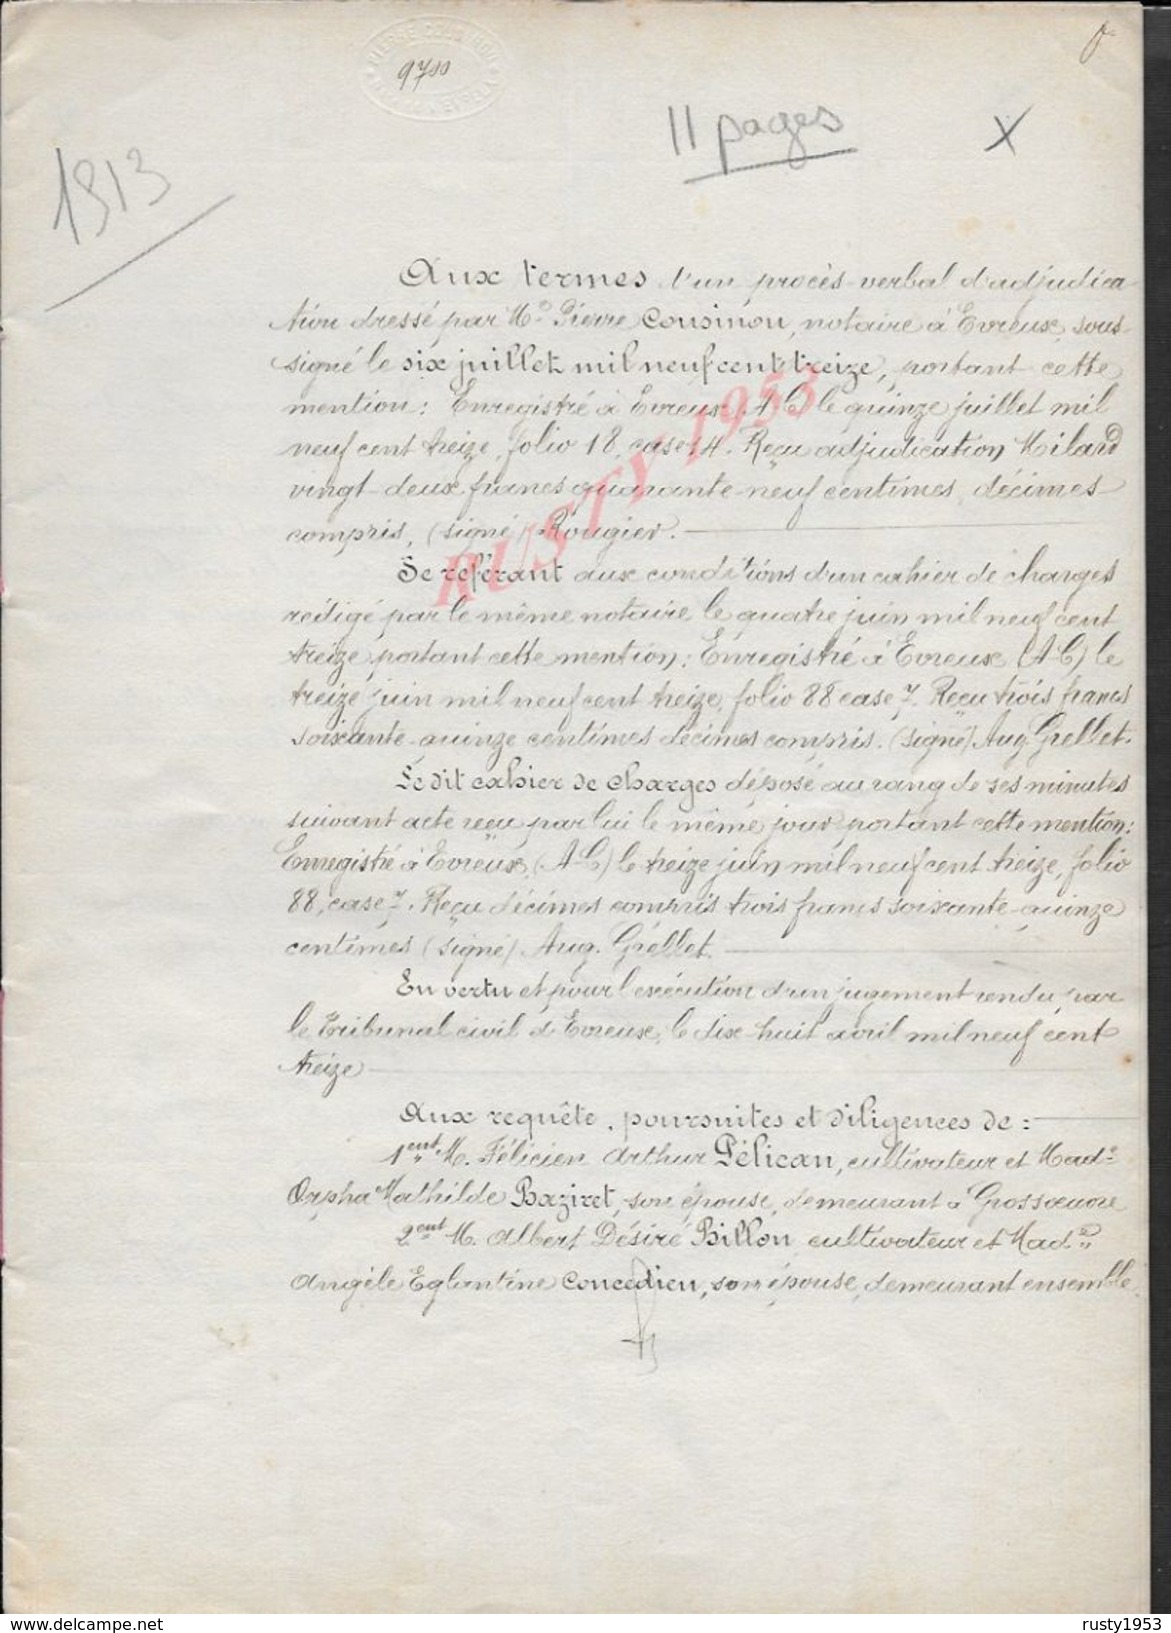 9700
11 pages
X
1913
Aux termes d'un procès-verbal d'adjudica-
tion dressé par Me Pierre Cousinou, notaire à Evreux, sous-
signé le six juillet mil neuf cent treize, portant cette
mention: Enregistré à Evreux A.C. le quinze juillet mil
neuf cent treize, folio 18, case 14. Reçu adjudication Milard
vingt-deux francs quarante-neuf centimes, décimes
compris, (signé) Rougier.
Se référant aux conditions d'un cahier de charges
rédigé par le même notaire le quatre juin mil neuf cent
treize, portant cette mention: Enregistré à Evreux (A.C) le
treize juin mil neuf cent treize, folio 88 case 7. Reçu trois francs
soixante-quinze centimes décimes compris. (signé) Aug. Grellet.
Le dit cahier de charges déposé au rang de ses minutes
suivant acte reçu par lui le même jour portant cette mention:
Enregistré à Evreux, (A.C) le treize juin mil neuf cent treize, folio
88, case 7. Reçu décimes compris trois francs soixante-quinze
centimes (signé) Aug. Grellet.
En vertu et pour l'exécution d'un jugement rendu par
le Tribunal civil d'Evreux, le dix-huit avril mil neuf cent
treize
Aux requête, poursuites et diligences de:
1ent M. Félicien Arthur Pélican, cultivateur et Made
Orpha Mathilde Baziret, son épouse, demeurant à Grossœuvre
2ent M. Albert Désiré Billon cultivateur et Made
Angèle Eglantine Concedieu, son épouse, demeurant ensemble
RUSTY 1953
www.delcampe.net
rusty1953